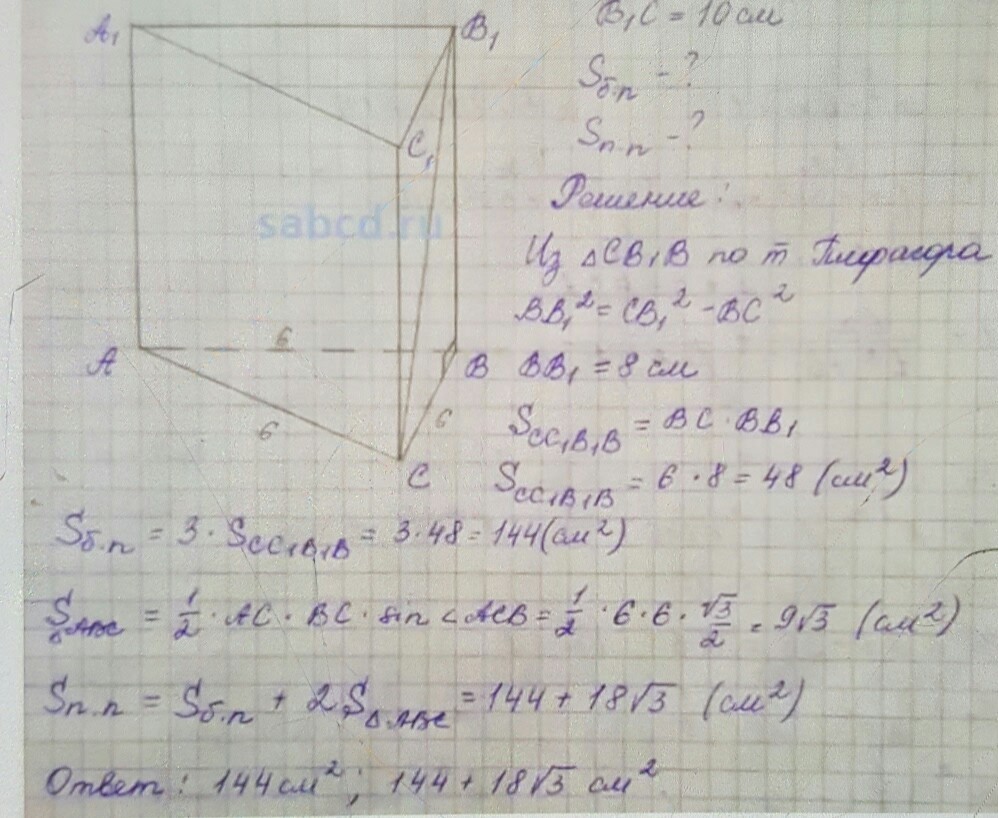 A₁
B₁
B₁C = 10 см
Sб.п - ?
Sп.п - ?
C₁
Решение:
sabcd.ru
Из △CB₁B по т Пифагора
BB₁² = CB₁² - BC²
6
A
B
BB₁ = 8 см
6
6
S_CC₁B₁B = BC · BB₁
C
S_CC₁B₁B = 6 · 8 = 48 (см²)
Sб.п = 3 · S_CC₁B₁B = 3 · 48 = 144 (см²)
S_△ABC = 1/2 · AC · BC · sin ∠ACB = 1/2 · 6 · 6 · √3/2 = 9√3 (см²)
Sп.п = Sб.п + 2S_△ABC = 144 + 18√3 (см²)
Ответ: 144 см²; 144 + 18√3 см²